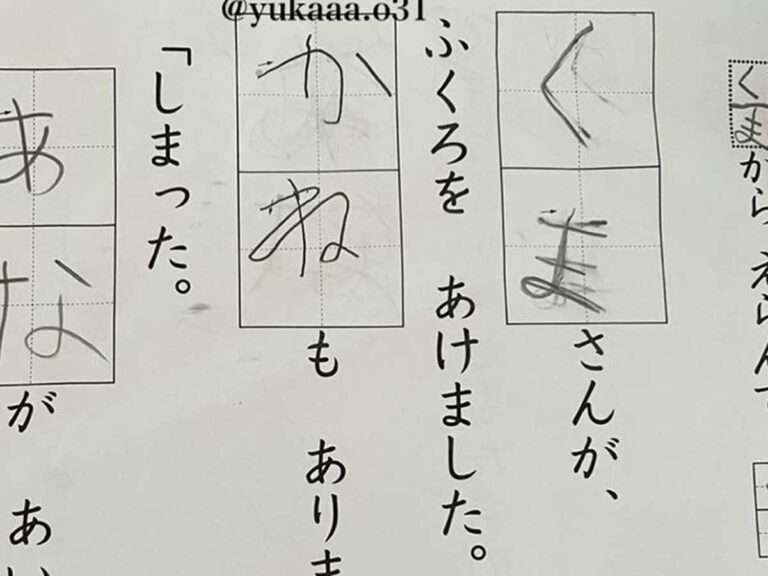 @yukaaa.o31
くまから えらんで
くまさんが、
ふくろを あけました。
かねも ありま
「しまった。
あなが あい